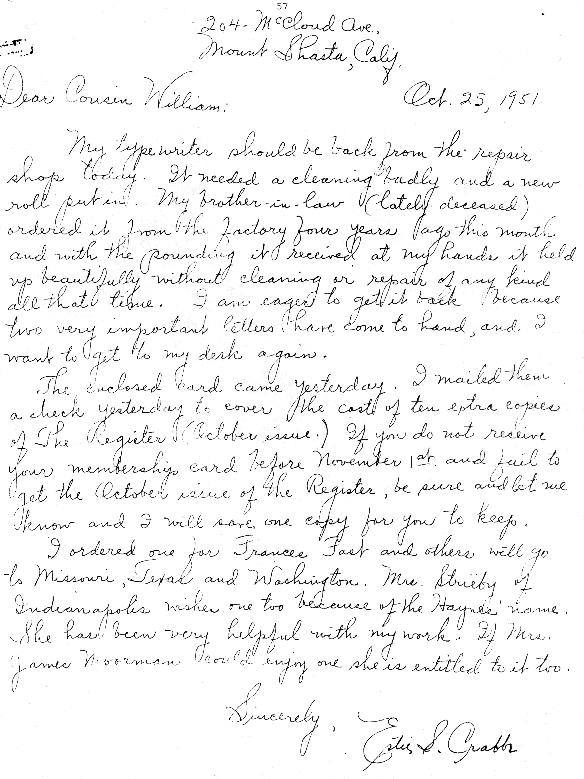 57
204 - McCloud Ave.
Mount Shasta, Calif.
Dear Cousin William:
Oct. 25, 1951.
My typewriter should be back from the repair
shop today. It needed a cleaning badly and a new
roll put in. My brother-in-law (lately deceased)
ordered it from the factory four years ago this month
and with the pounding it received at my hands it held
up beautifully without cleaning or repair of any kind
all that time. I am eager to get it back because
two very important letters have come to hand, and I
want to get to my desk again.
The enclosed card came yesterday. I mailed them
a check yesterday to cover the cost of ten extra copies
of The Register (October issue.) If you do not receive
your membership card before November 1st. and fail to
get the October issue of the Register, be sure and let me
know and I will save one copy for you to keep.
I ordered one for Frances Fast and others will go
to Missouri, Texas and Washington. Mrs. Strieby of
Indianapolis wishes one too because of the Haynes name.
She has been very helpful with my work. If Mrs.
James Moorman would enjoy one she is entitled to it too.
Sincerely,
S. Crabb